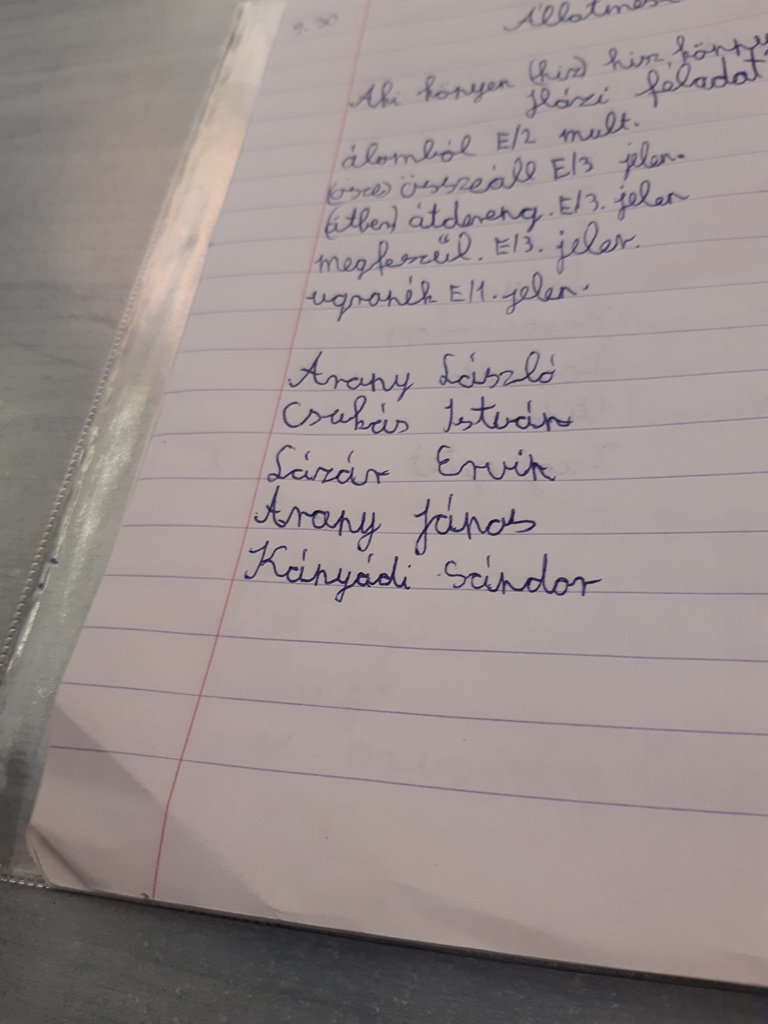 9.30
Állatmes
Aki könyen (hisz) hisz, könny
Házi feladat
álomból E/2 mult.
(össze) összeáll E/3 jelen.
(átben) átdereng. E/3. jelen
megfeszül. E/3. jelen.
ugranék E/1. jelen.
Arany László
Csukás István
Lázár Ervin
Arany János
Kányádi Sándor